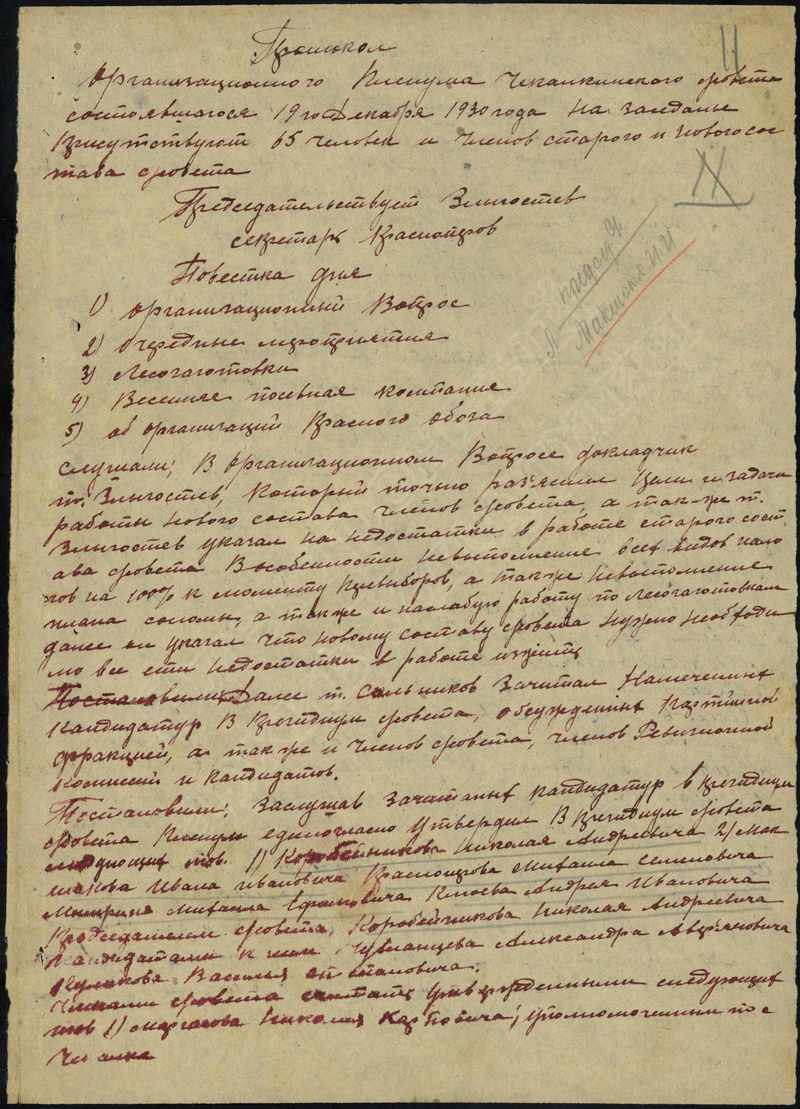 11
Протокол
Организационного Пленума Чекалкинского совета
состоявшагося 19го Декабря 1930 года на заседанье
присутствуют 65 человек и членов старого и нового сос
тава совета
IX
Председательствует Злыгостев
секретарь Красноперов
Повестка дня
1) Организационный Вопрос
2) Очередные мероприятия
3) Лесозаготовки
4) Весенняя посевная компания
5) об организаций Красного обоза
Слушали; В Организационном Вопросе докладчик
т. Злыгостев, который точно раз'яснил цели и задачи
работы нового состава членов совета, а так-же т.
Злыгостев указал на недостатки в работе старого сост
ава совета В особенности невыполнение всех видов нало
гов на 100% к моменту Перевыборов, а так же невыполнение
плана соломы, а так же и на слабую работу по Лесозаготовкам
далее он указал что новому составу совета нужно необходи
мо все эти недостатки в работе изжить
Постановили Далее т. Сальников Зачитал Намеченных
Кандидатур В Президиум совета, обсужденных Партийной
фракцией, а так же и членов совета, членов Ревизионной
Комиссий и Кандидатов.
Постановили; Заслушав Зачитанных кандидатур в президиум
совета Пленум единогласно Утвердил В Президиум совета
следующих тов. 1) Коробейникова Николая Андреевича 2)
Ивана Ивановича Красноперова Михаила Семеновича
Михаила Ефимовича Андрея Ивановича
Председателем совета, Коробейникова Николая Андреевича
Кандидатами к ним Александра Аверьяновича
Куликова Василья
Членами совета считать утвержденными следующих
тов 1) Николая Карповича; уполномоченным по с
Чекалка